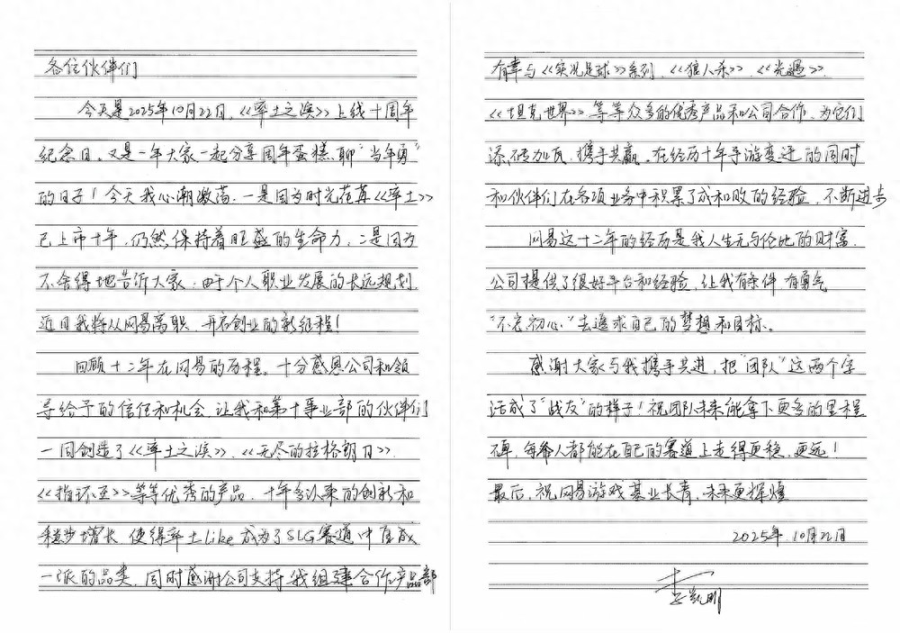 各位伙伴们
今天是2025年10月22日，《率土之滨》上线十周年
纪念日。又是一年大家一起分享周年蛋糕，聊“当年勇”
的日子！今天我心潮激荡，一是因为时光荏苒《率土》
已上市十年，仍然保持着旺盛的生命力，二是因为
不舍得地告诉大家，由于个人职业发展的长远规划，
近日我将从网易离职，开启创业的新征程！
回顾十二年在网易的历程。十分感恩公司和领
导给予的信任和机会，让我和第十事业部的伙伴们
一同创造了《率土之滨》，《无尽的拉格朗日》，
《指环王》等等优秀的产品，十年多以来的创新和
稳步增长，使得率土like成为了SLG赛道中自成
一派的品类，同时感谢公司支持，我组建合作产品部
有幸与《实况足球》系列，《狼人杀》，《光遇》，
《坦克世界》等等众多的优秀产品和公司合作，为它们
添砖加瓦，携手共赢。在经历十年手游变迁的同时
和伙伴们在各项业务中积累了成和败的经验，不断进步
网易这十二年的经历是我人生无与伦比的财富，
公司提供了很好平台和经验，让我有条件 有勇气
“不忘初心”去追求自己的梦想和目标。
感谢大家与我携手共进，把“团队”这两个字
活成了“战友”的样子！祝团队未来能拿下更多的里程
碑，每个人都能在自己的赛道上走得更稳，更远！
最后，祝网易游戏基业长青，未来更辉煌
2025年10月22日
李凯明